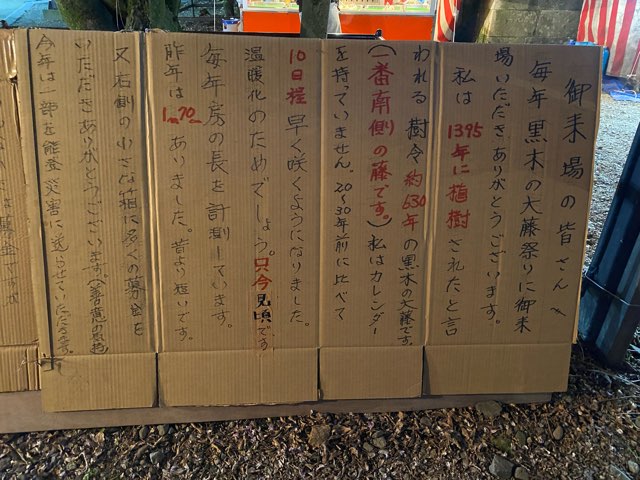 御来場の皆さんへ
毎年 黒木の大藤祭りに御来
場いただきありがとうございます。
私は 1395年に植樹されたと言
われる 樹令 約630年の黒木の大藤です。
(一番南側の藤です。) 私はカレンダー
を持っていません。20〜30年前に比べて
10日程 早く咲くようになりました。
温暖化のためでしょう。只今見頃です。
毎年房の長を計測しています。
昨年は 1m70cm ありました。昔より短いです。
又右側の小さな箱に多くの募金を
いただきありがとうございます。
今年は一部を能登災害に送らせていただきます。